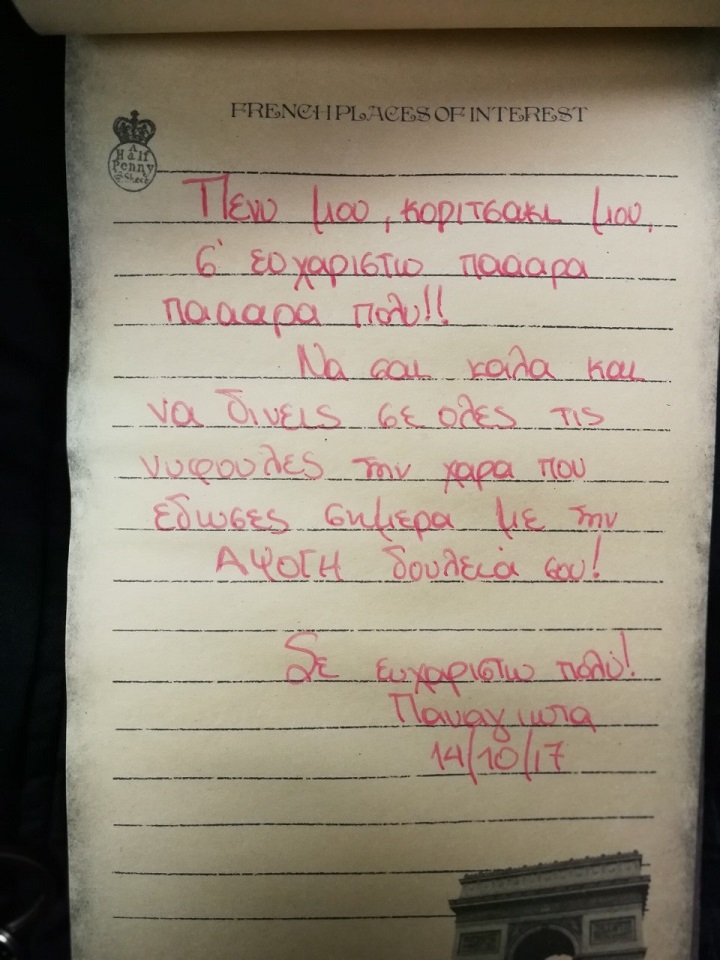 FRENCH PLACES OF INTEREST
A
Half
Penny
Πενυ μου, κοριτσακι μου,
σ' ευχαριστω παααρα
παααρα πολυ!!
Να σαι καλα και
να δινεις σε ολες τις
νυφουλες την χαρα που
εδωσες σημερα με την
ΑΨΟΓΗ δουλειά σου!
Σε ευχαριστω πολύ!
Παναγιωτα
14/10/17